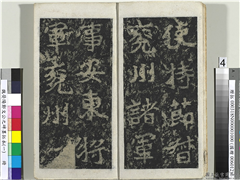 使持節督
兗州諸軍
事安東將
軍兗州